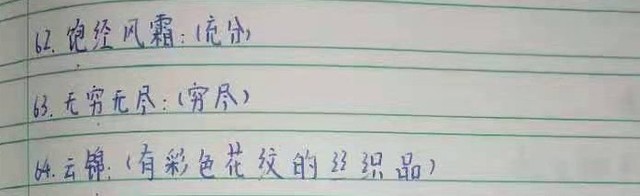 62. 饱经风霜:(充分)
63. 无穷无尽:(穷尽)
64. 云锦:(有彩色花纹的丝织品)